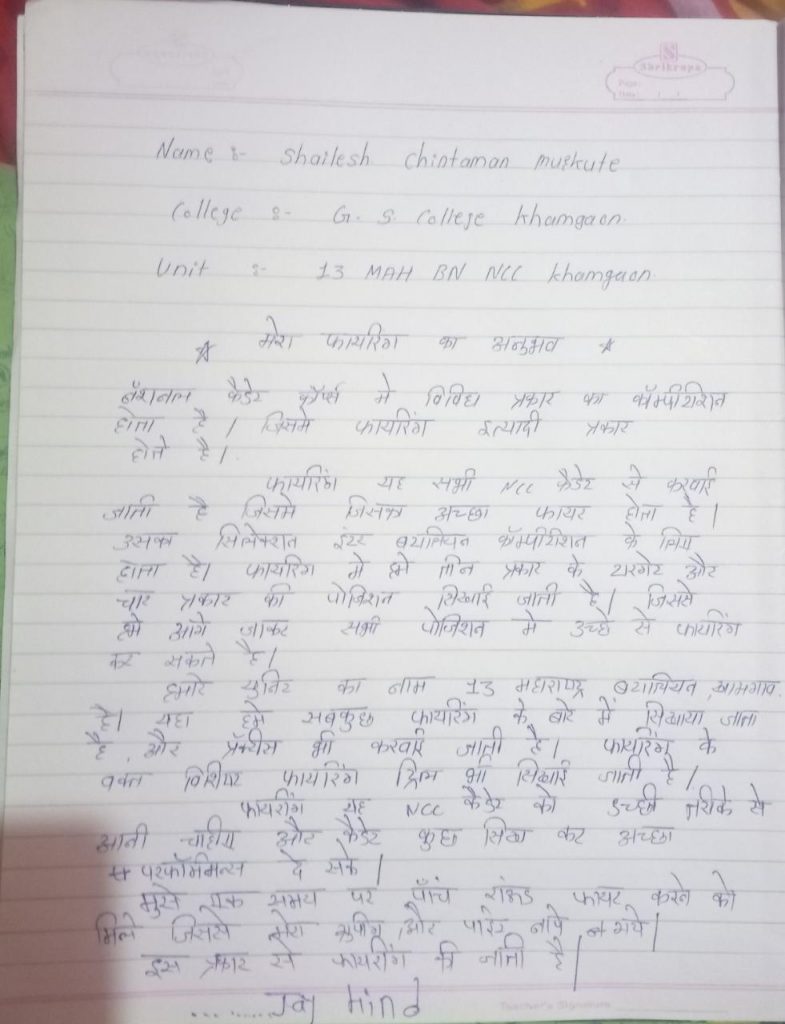 Shrikrupa
Page:
Date: / /
Name :- Shailesh Chintaman Muskute
College :- G. S. College Khamgaon.
Unit :- 13 MAH BN NCC Khamgaon
☆ मेरा फायरिंग का अनुभव ☆
नॅशनल कैडेट कॉर्प्स मे विविध प्रकार का कॉम्पीटीशन
होता है। जिसमे फायरिंग इत्यादी प्रकार
होते है।
फायरिंग यह सभी NCC कैडेट से करवाई
जाती है जिसमे जिसका अच्छा फायर होता है।
उसका सिलेक्शन इंटर बटालियन कॉम्पीटीशन के लिए
होता है। फायरिंग मे हमे तीन प्रकार के टारगेट और
चार प्रकार की पोजिशन सिखाई जाती है। जिससे
हमे आगे जाकर सभी पोजिशन मे उच्छे से फायरिंग
कर सकते है।
हमारे युनिट का नाम 13 महाराष्ट्र बटालियन, खामगाव
है। यहा हमे सबकुछ फायरिंग के बारे में सिखाया जाता
है, और प्रॅक्टीस भी करवाई जाती है। फायरिंग के
वक्त विशिष्ट फायरिंग ड्रिल भी सिखाई जाती है।
फायरींग यह NCC कैडेट को उच्छी तरीके से
आनी चाहीए और कैडेट कुछ सिख कर अच्छा
परफॉर्मन्स दे सके।
मुझे एक समय पर पाँच राऊंड फायर करने को
मिले जिससे मेरा ग्रुपींग और पाईंट नापे गये।
इस प्रकार से फायरींग की जाती है।
.........Jay Hind
Teacher's Signature